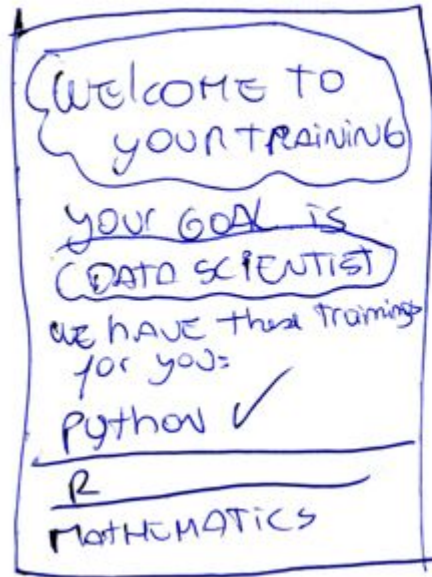 WELCOME TO
YOUR TRAINING
YOUR GOAL IS
DATA SCIENTIST
WE HAVE these trainings
for you:
Python ✓
R
MATHEMATICS